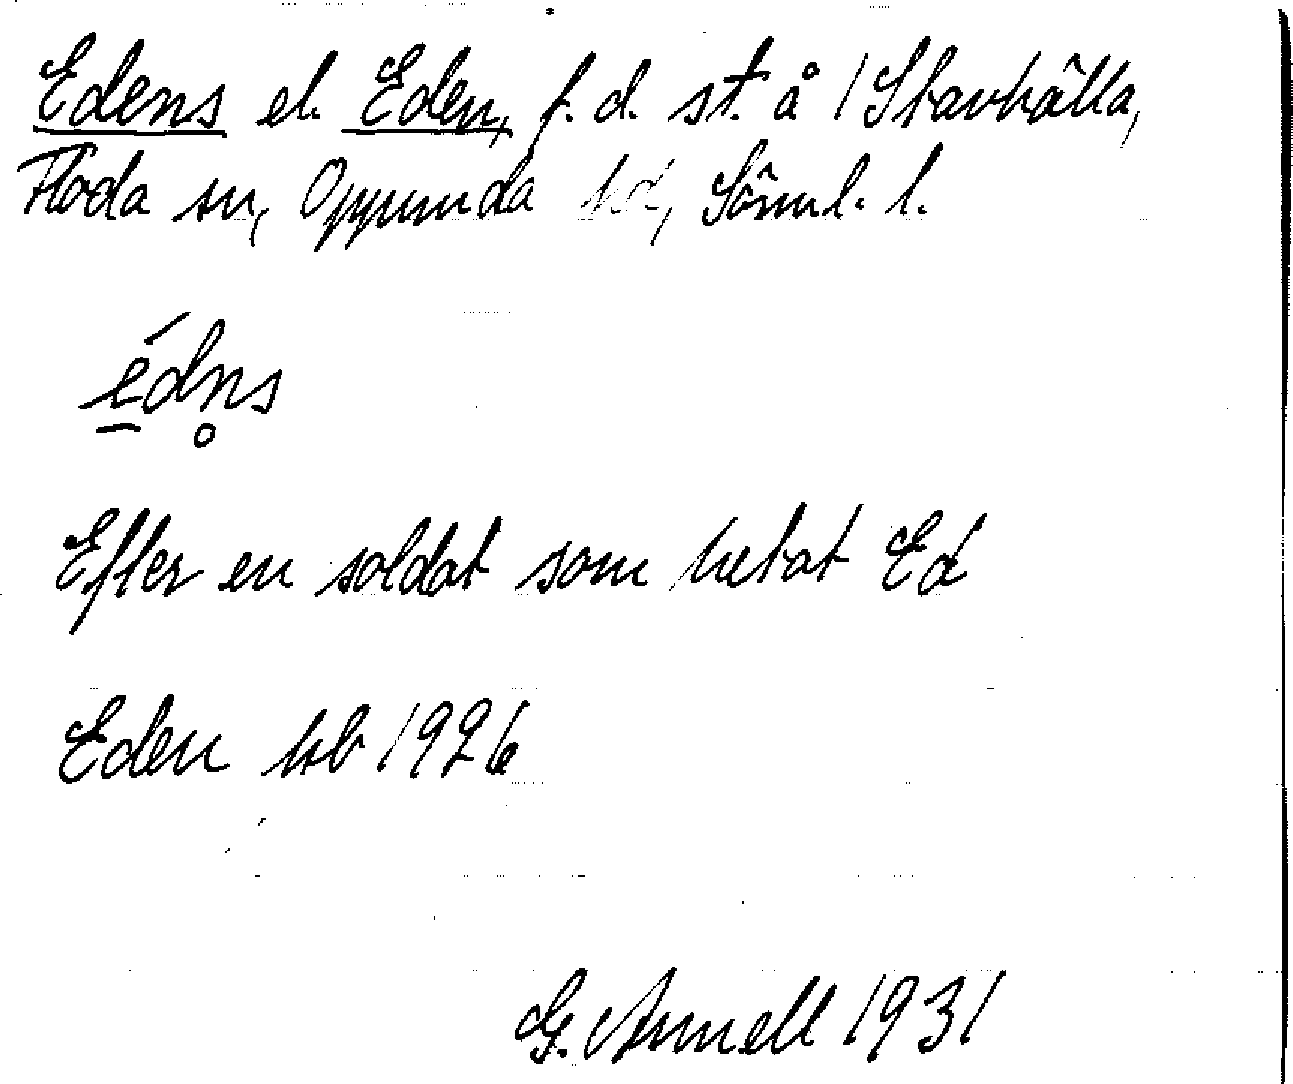 Edens el. Eden, f. d. st. å 1 Stavhälla,
Floda sn, Oppunda hd, Sörml. l.
édn̥s
Efter en soldat som hetat Ed
Eden hb 1926
G. Arnell 1931